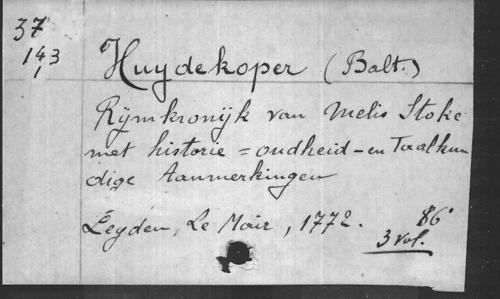 37
143
1
Huydekoper (Balt.)
Rijmkronijk van Melis Stoke
met historie = oudheid - en Taalkun
dige Aanmerkingen
Leyden, Le Mair, 1772. 8o
3 vol.